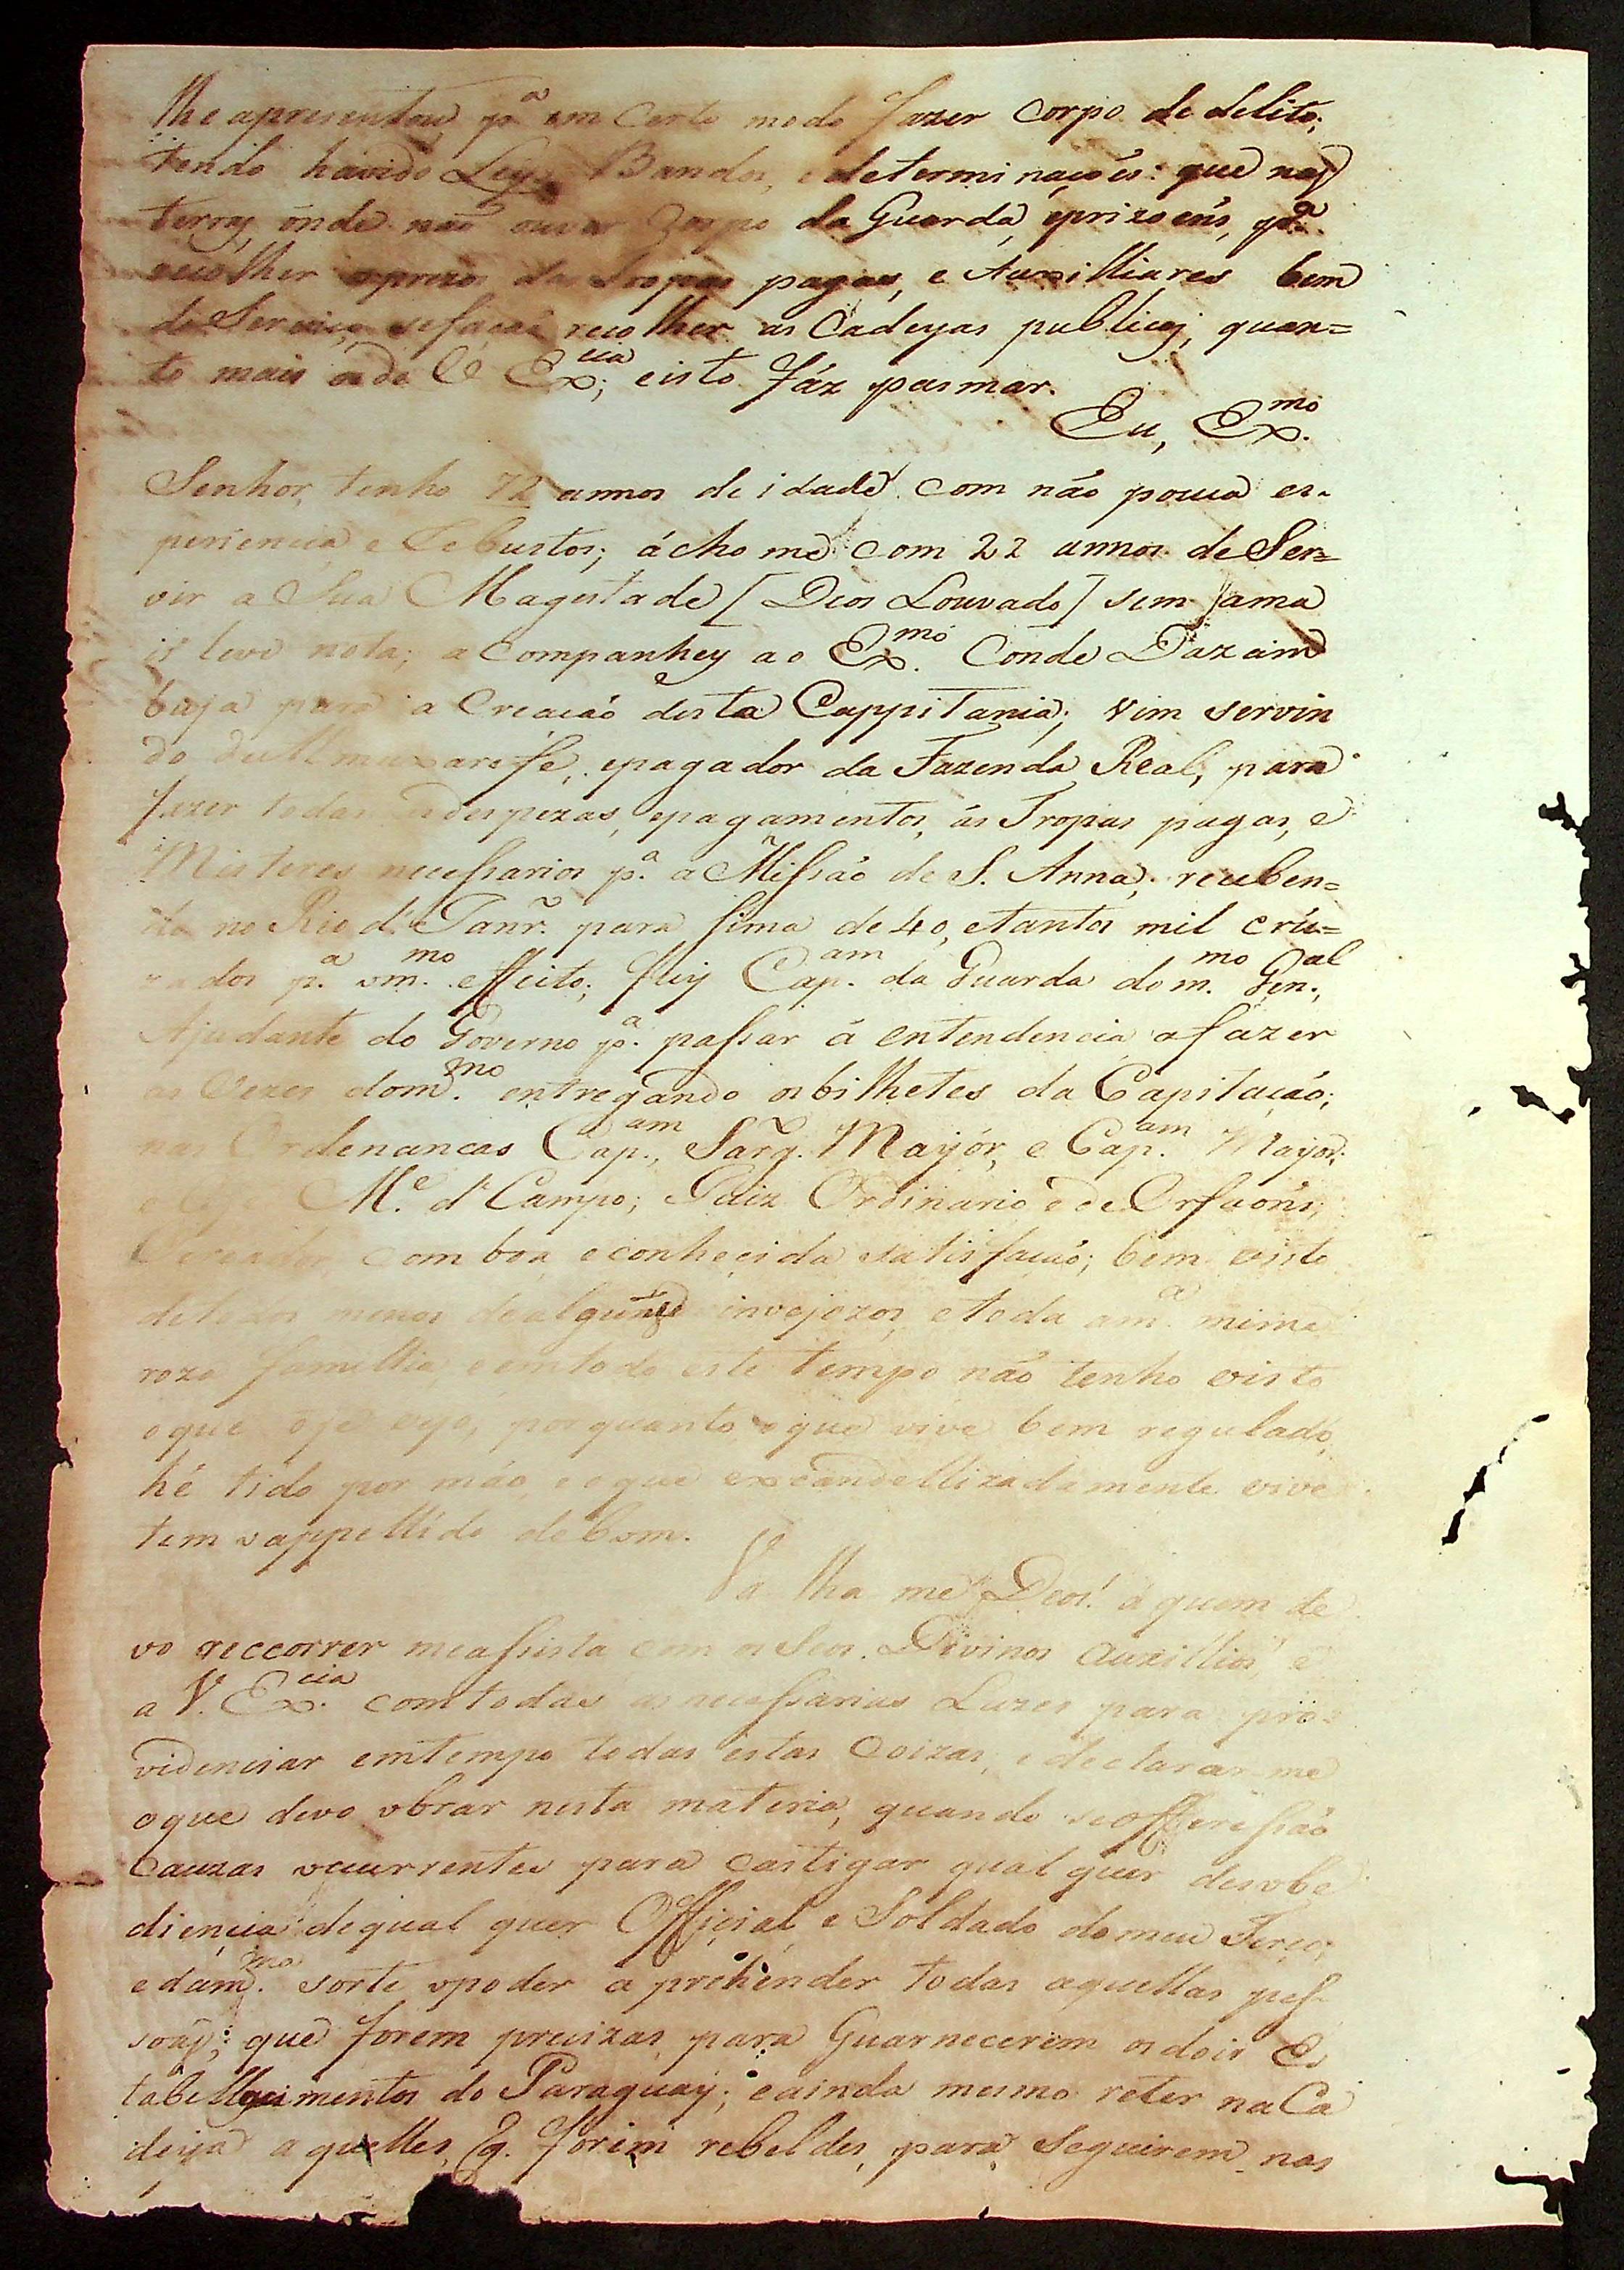 lhe apresentou p.ª em Certo modo fazer corpo de delito;
tendo havido Leys Bandos, e determinaçoẽs: que nas
terras, onde não ouver Corpo da Guarda, eprizoẽs, p.ª
recolher aprezos das Tropas pagas, e Auxilliares bem
do Serviço sefaçaõ recolher as Cadeyas publicas, quan=
to mais onde hé Ex.cia; eisto fáz pasmar.
Eu, Ex.mo
Senhor, tenho 72 annos de idade com não pouca ex-
periencia e Robustos; ácho me com 22 annos de Ser=
vir a Sua Magestade [Deos Louvado] sem jama
is leve nota; acompanhey ao Ex.mo Conde Dazam
buja para a Creacão desta Cappitania; vim servin
do de Almuxarife, epagador da Fazenda Real, para
fazer todas as despezas, epagamentos, ás Tropas pagas, e
Misteres necessarios p.ª a Missão de S. Anna, receben=
do no Rio d.e Janr.o para sima de 40, etantos mil crú=
zados p.ª om.mo effeito; fuy Cap.am da Guarda do m.mo Gen.al,
Ajudante do Governo p.ª passar á entendencia afazer
as Vezes dom.mo entregando osbilhetes da Capitação;
nas Ordenancas Cap.am, Sarg.to Mayór, e Cap.am Mayor;
M.e d.e Campo; Juiz Ordinario e de Orfaõns,
Vereador com boa, econhecida satisfacão; bem visto
detodos menos dealguns invejozos, etoda am.ª nume
roza famillia, eemtodo este tempo não tenho visto
oque oje vejo, porquanto oque vive bem regulado,
hé tido por máo, e oque excandellizadamente vive
tem oappellido debom.
Valha me Deos! a quem de
vo reccorrer meassista com os Seos Divinos Auxillios, e
a V. Ex.cia comtodas as necessarias Luzes para pro=
videnciar emtempo todas estas Coizas, edeclarar me
oque devo obrar nesta materia, quando seofferessão
Cauzas occurrentes para castigar qualquer desobe
diencia dequal quer Official e Soldado domeu Terço;
edam.ma sorte opoder aprehender todas aquellas pes-
soas; que forem precizas para Guarnecerem os dois Es
tabellecimentos do Paraguay; eainda mesmo reter na Ca
deya aquelles, q. forem rebeldes, para Seguirem nas